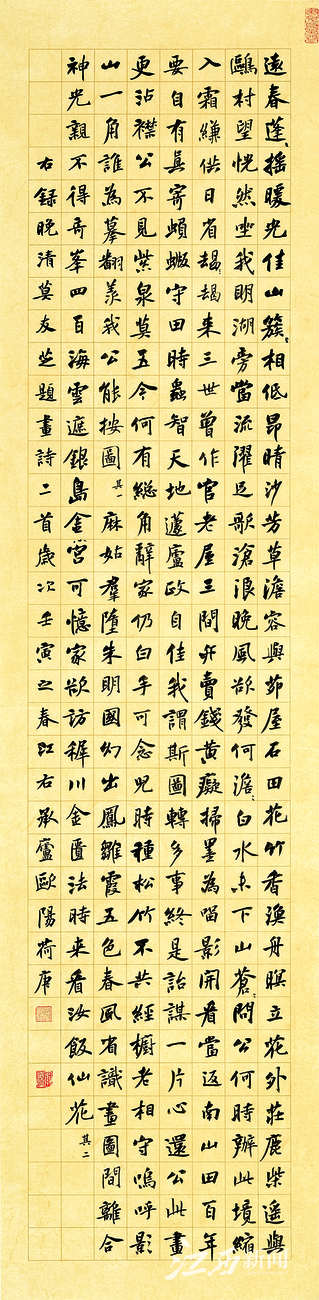 遠春蓮〻搖暖光佳山簇〻相低昂晴沙芳草澹容與茆屋石田花竹香漁舟暝立花外莊鹿柴遙與
鷗村望恍然坐我明湖旁當流濯足歌滄浪晚風欲發何澹〻白水東下山蒼〻問公何時辦此境縮
入霜縑供日省朅朅來三世曾作官老屋三間弃賣錢黃癡掃墨為留影開看當返南山田百年
要自有真寄守田時蟲智天地蘧廬政自佳我謂斯圖轉多事終是詒謀一片心還公此畫
更沾襟公不見紫泉莫五今何有總角辭家仍白手可念兒時種松竹不共經櫥老相守嗚呼影
山一角誰為摹翻羨我公能按圖其一麻姑羣墮朱明國幻出鳳雛霞五色春風省識畫圖間離合
神光親不得奇峯四百海雲遮銀島金宮可憶家欲訪稚川金匱法時來看汝飯仙花其二
右錄晚清莫友芝題畫詩二首歲次壬寅之春江右承廬歐陽荷庚
江西新闻